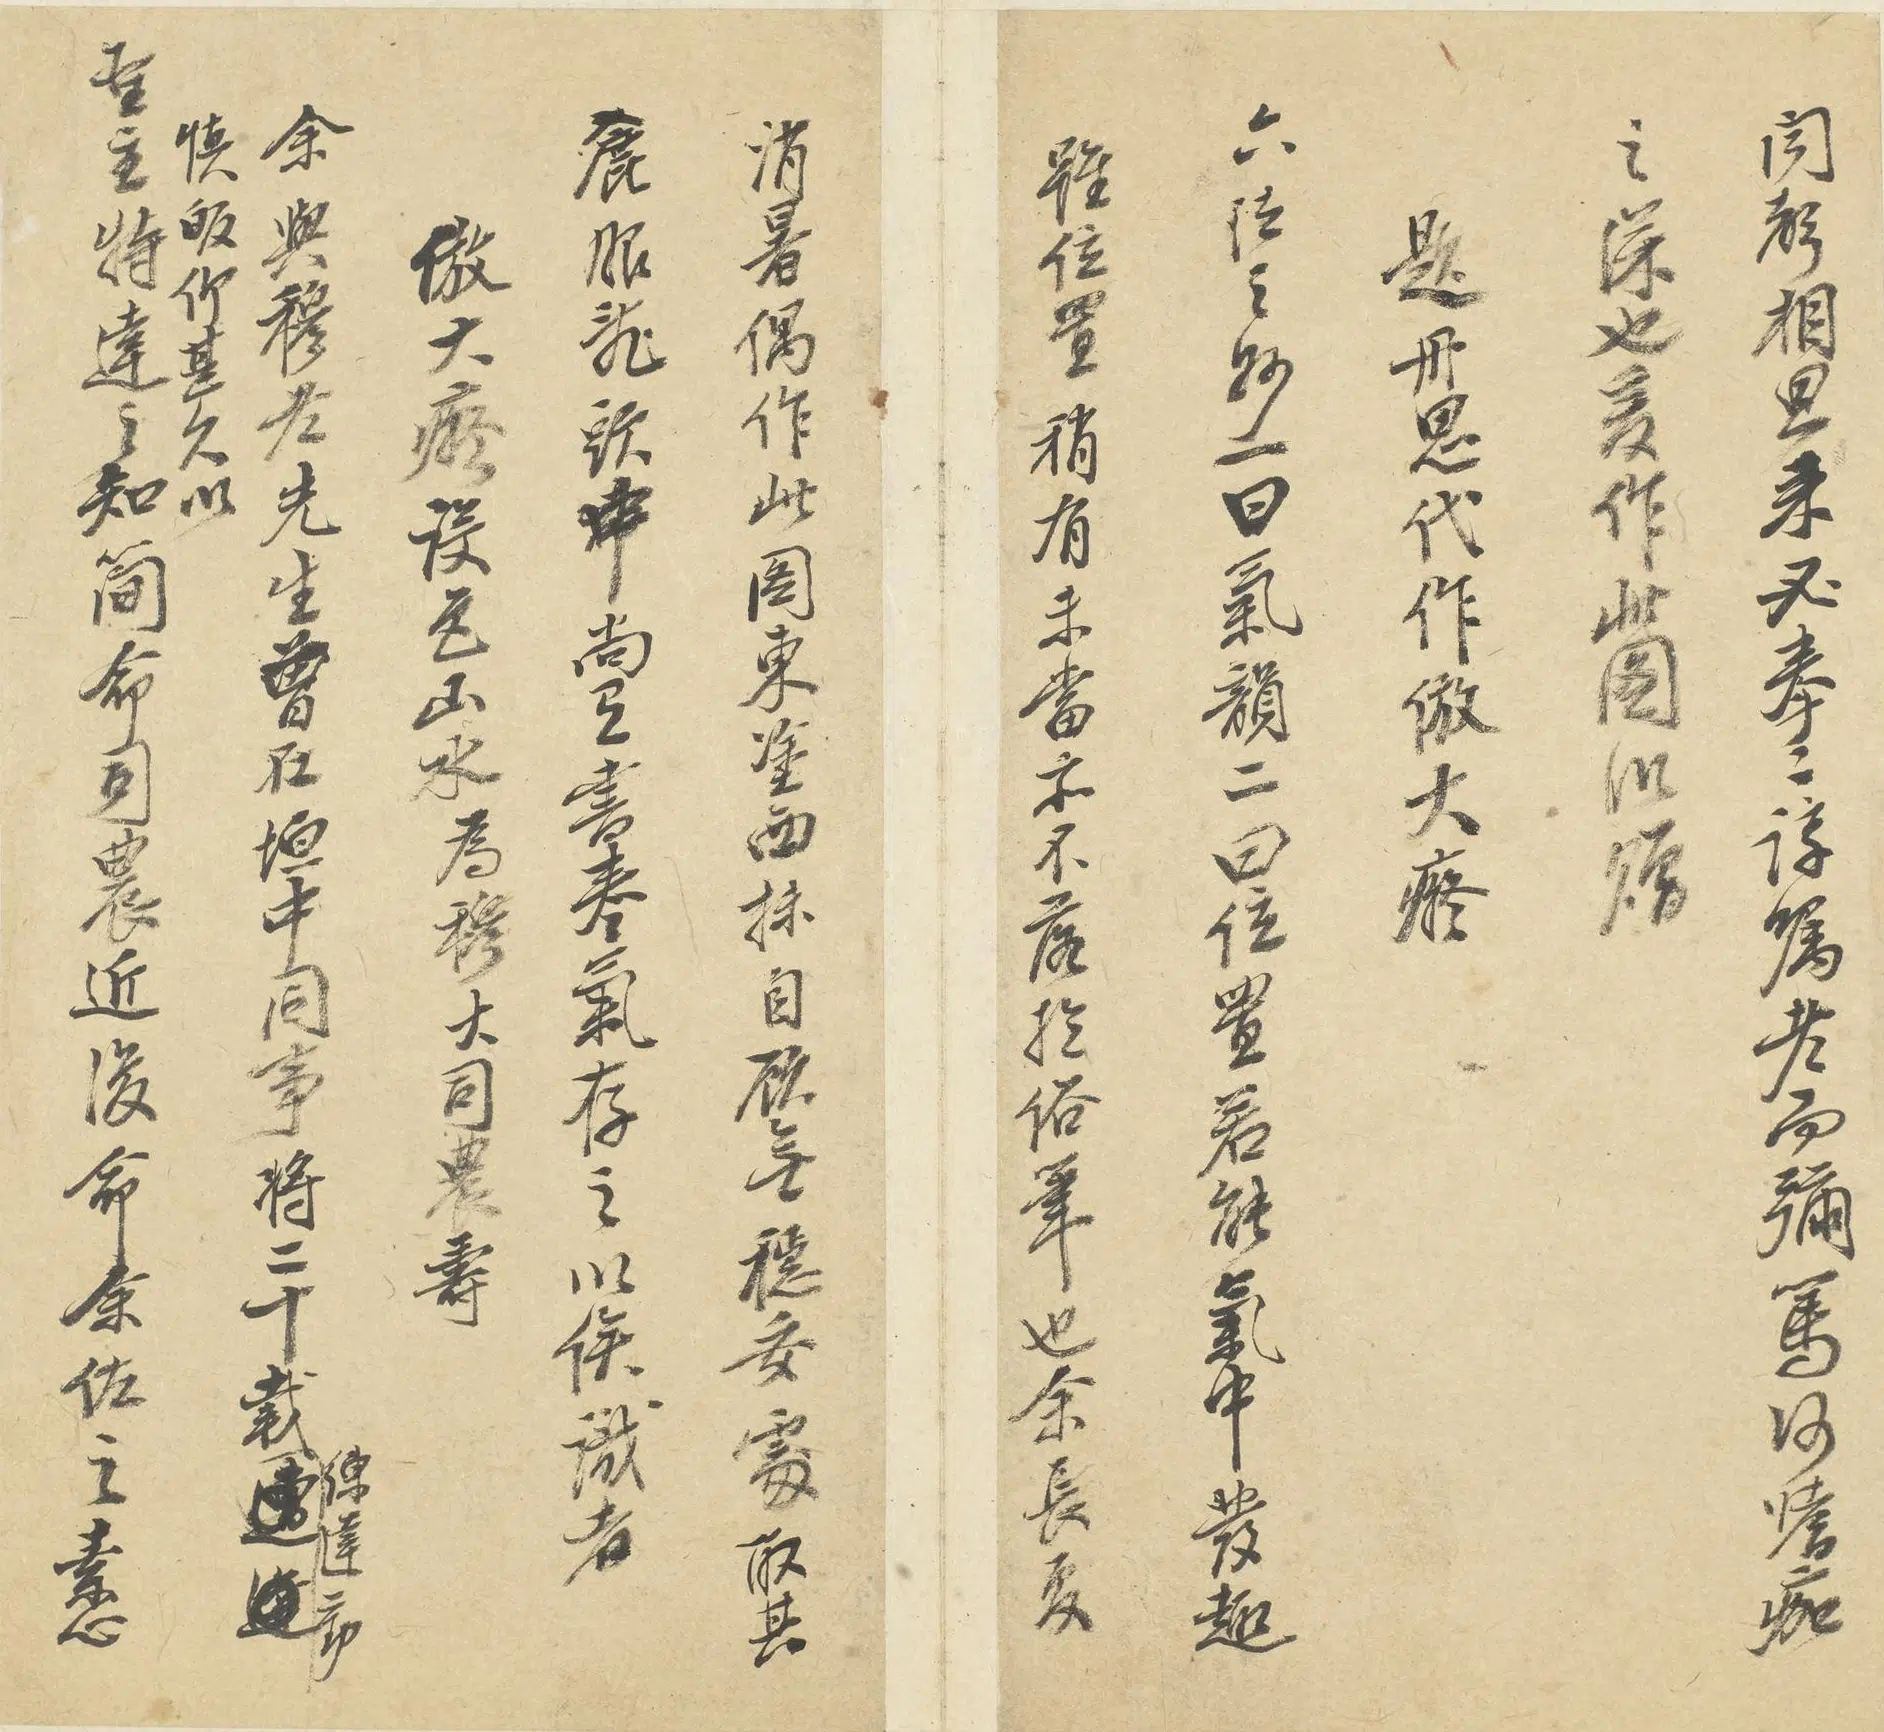 聞聲相思來必拳〻諄囑老而彌篤何嗜痂
之深也爰作此圖以贈
題丹思代作倣大癡
六法之妙一曰氣韻二曰位置若能氣中發趣
雖位置稍有未當亦不落於俗筆也余長夏
消暑偶作此圖東塗西抹自顧無穩妥處取其
麄服亂頭中尚有書卷氣存之以俟識者
倣大癡設色山水為穆大司農壽
余與穆老先生曾在垣中同事將二十載
練達勤
慎皈仰甚久以
聖主特達之知簡命司農近復命余佐之素心